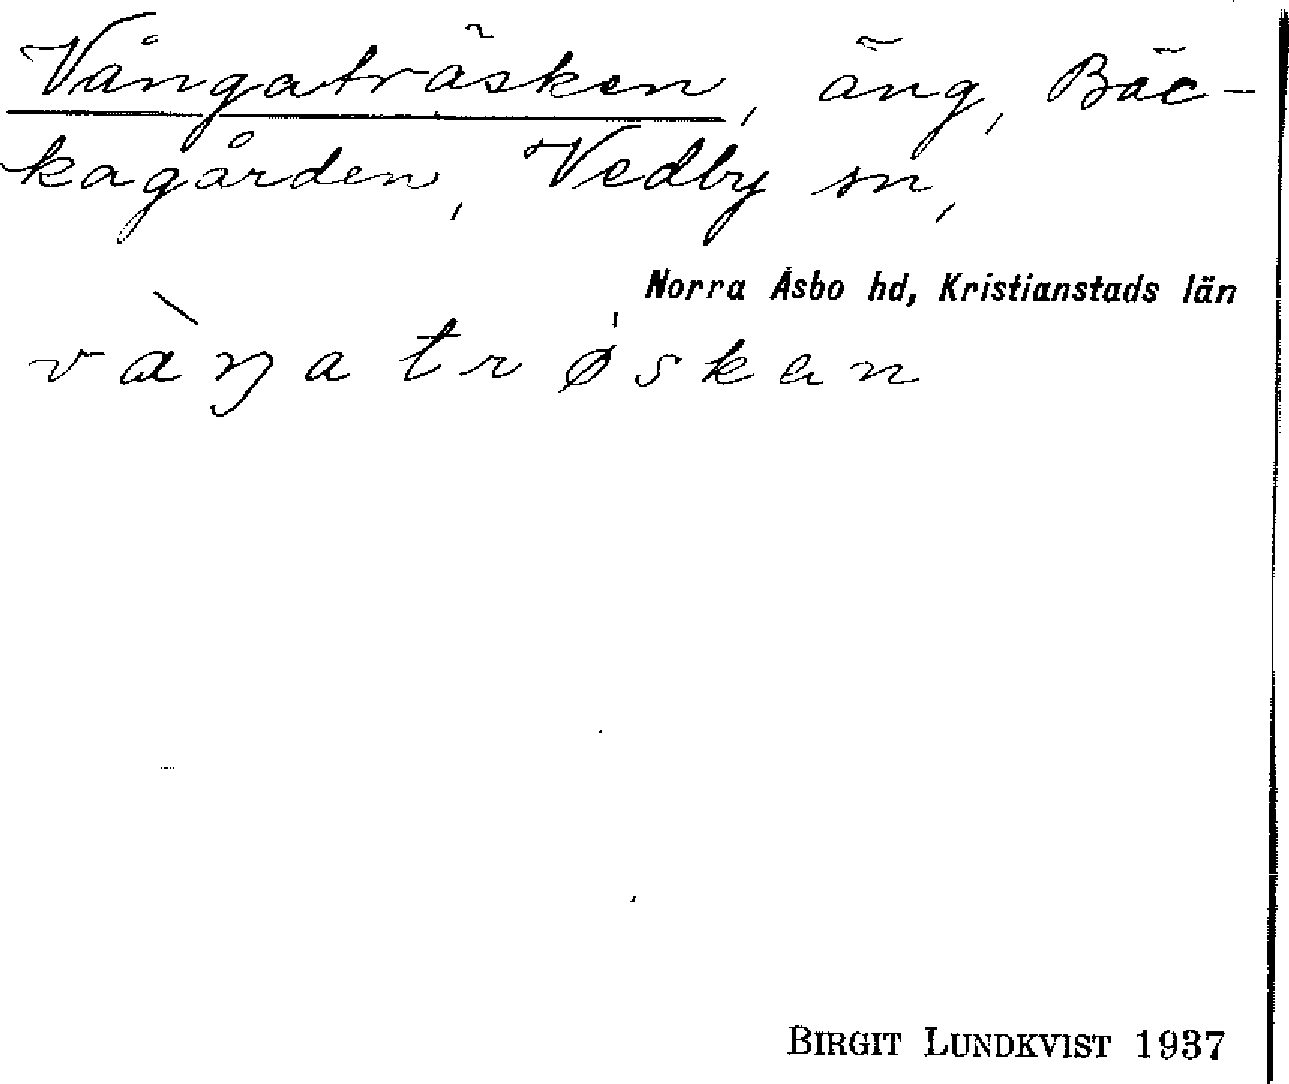 Vångaträsken, äng, Bäc-
kagården, Vedby sn,
Norra Åsbo hd, Kristianstads län
vàŋa trǿskan
BIRGIT LUNDKVIST 1937